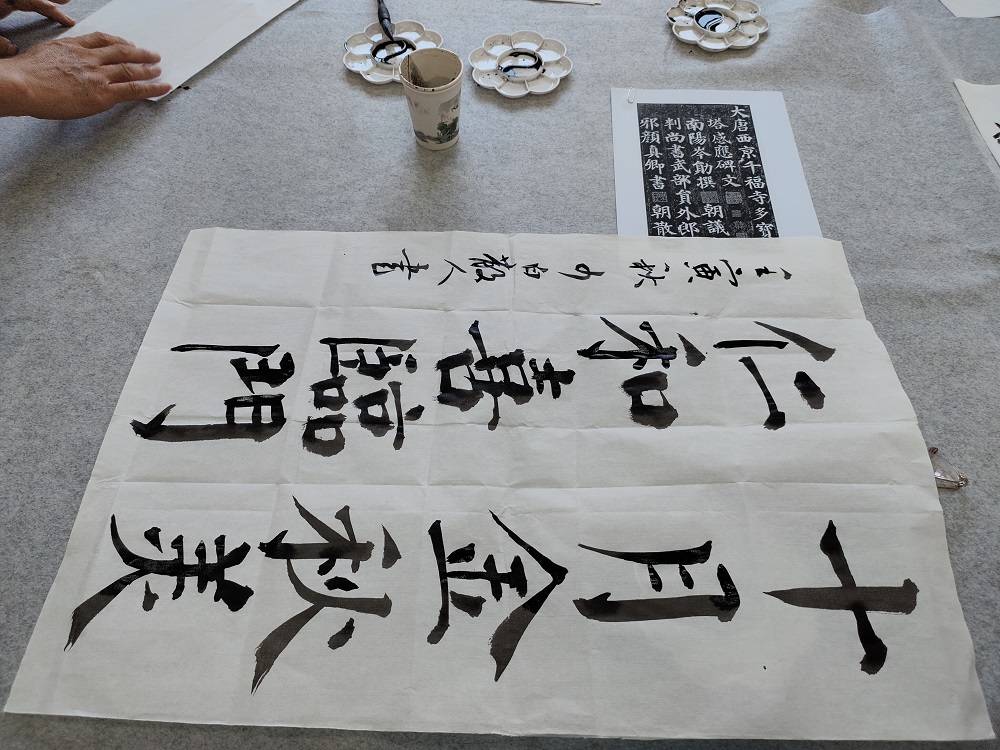 大唐西京千福寺多寶
塔感應碑文
南陽岑勛撰 朝議
判尚書武部員外郎
邪顏真卿書 朝散
十月金秋美
仁和喜臨門
壬寅秋 白散人書